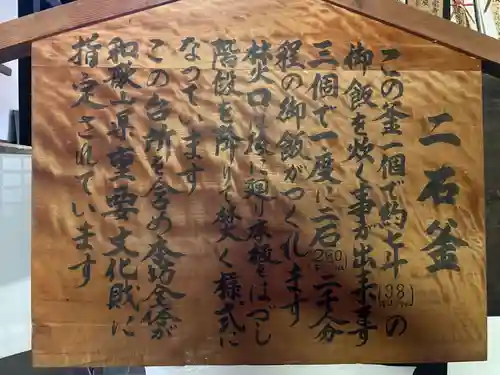 二石釜
この釜一個で約七斗(98キログラム)の
御飯を炊く事が出来ます
三個で一度に二石(280キログラム)二千人分
程の御飯がつくれます
焚火口は後に廻り床板をはづし
階段を降りて焚く様式に
なっています
この台所を含め本坊全体が
和歌山県重要文化財に
指定されています